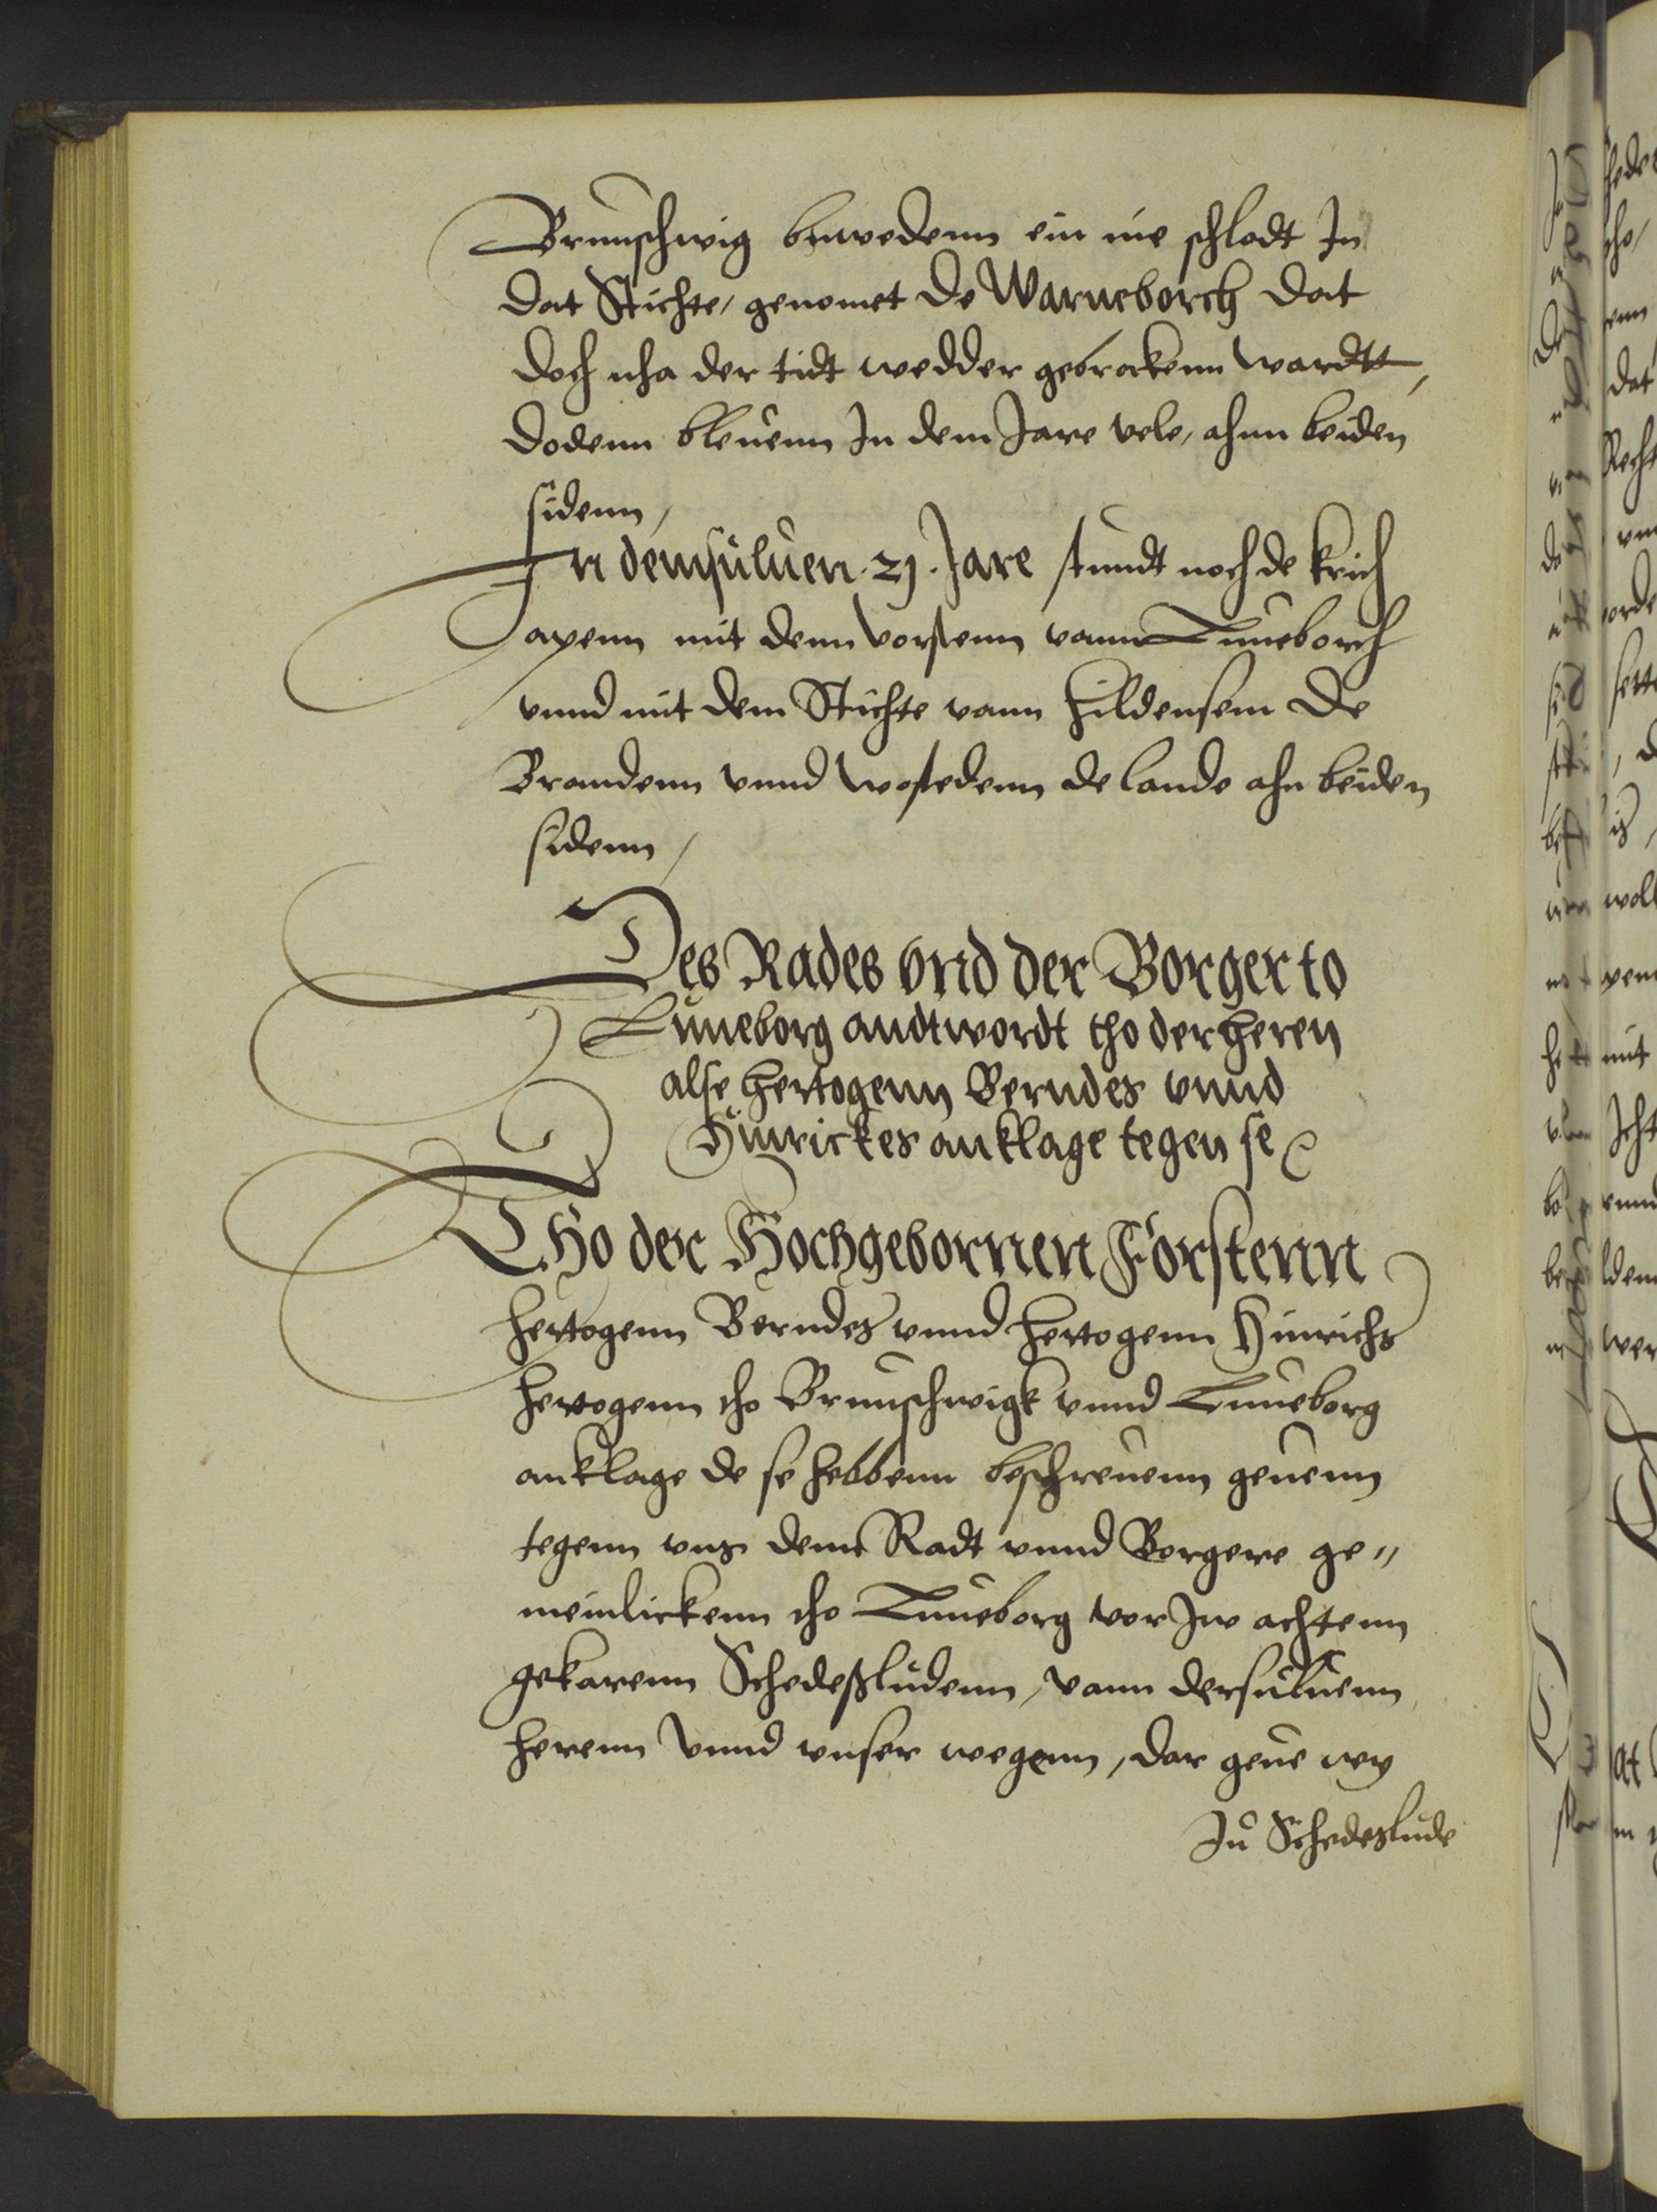 Brunschwig buwedenn ein nie schlodt In
dat Stichte, genomet de Warneborch dat
doch nha der tidt wedder gebrockenn wardtt,
Dodenn bleuenn In dem Jare vele, ahnn beiden
sidenn,
In demsuluen .21. Jare stundt noch de krich
apenn mit denn vorstenn vann Luneborch
vnnd mit dem Stichte vann Hildensem De
Brandenn vnnd wostedenn de lande ahn beiden
sidenn,
Des Rades vnd der Borger to
Luneborg andtwordt tho der heren
alse hertogenn Berndes vnnd
Hinrickes anklage tegen se
Tho der Hochgebornen Forstenn
hertogenn Berndes vnnd hertogenn Hinrichs
hertogenn tho Brunschwigk vnnd Luneborg
anklage de se hebbenn beschreuenn geuenn
tegenn vns denn Radt vnnd Borgere ge„
meinlickenn tho Luneborg vor Jw achtenn
gekarenn Schedeßludenn, vann dersuluenn
herenn vnnd vnser wegenn, dar geue wy
Ju Schedeslude